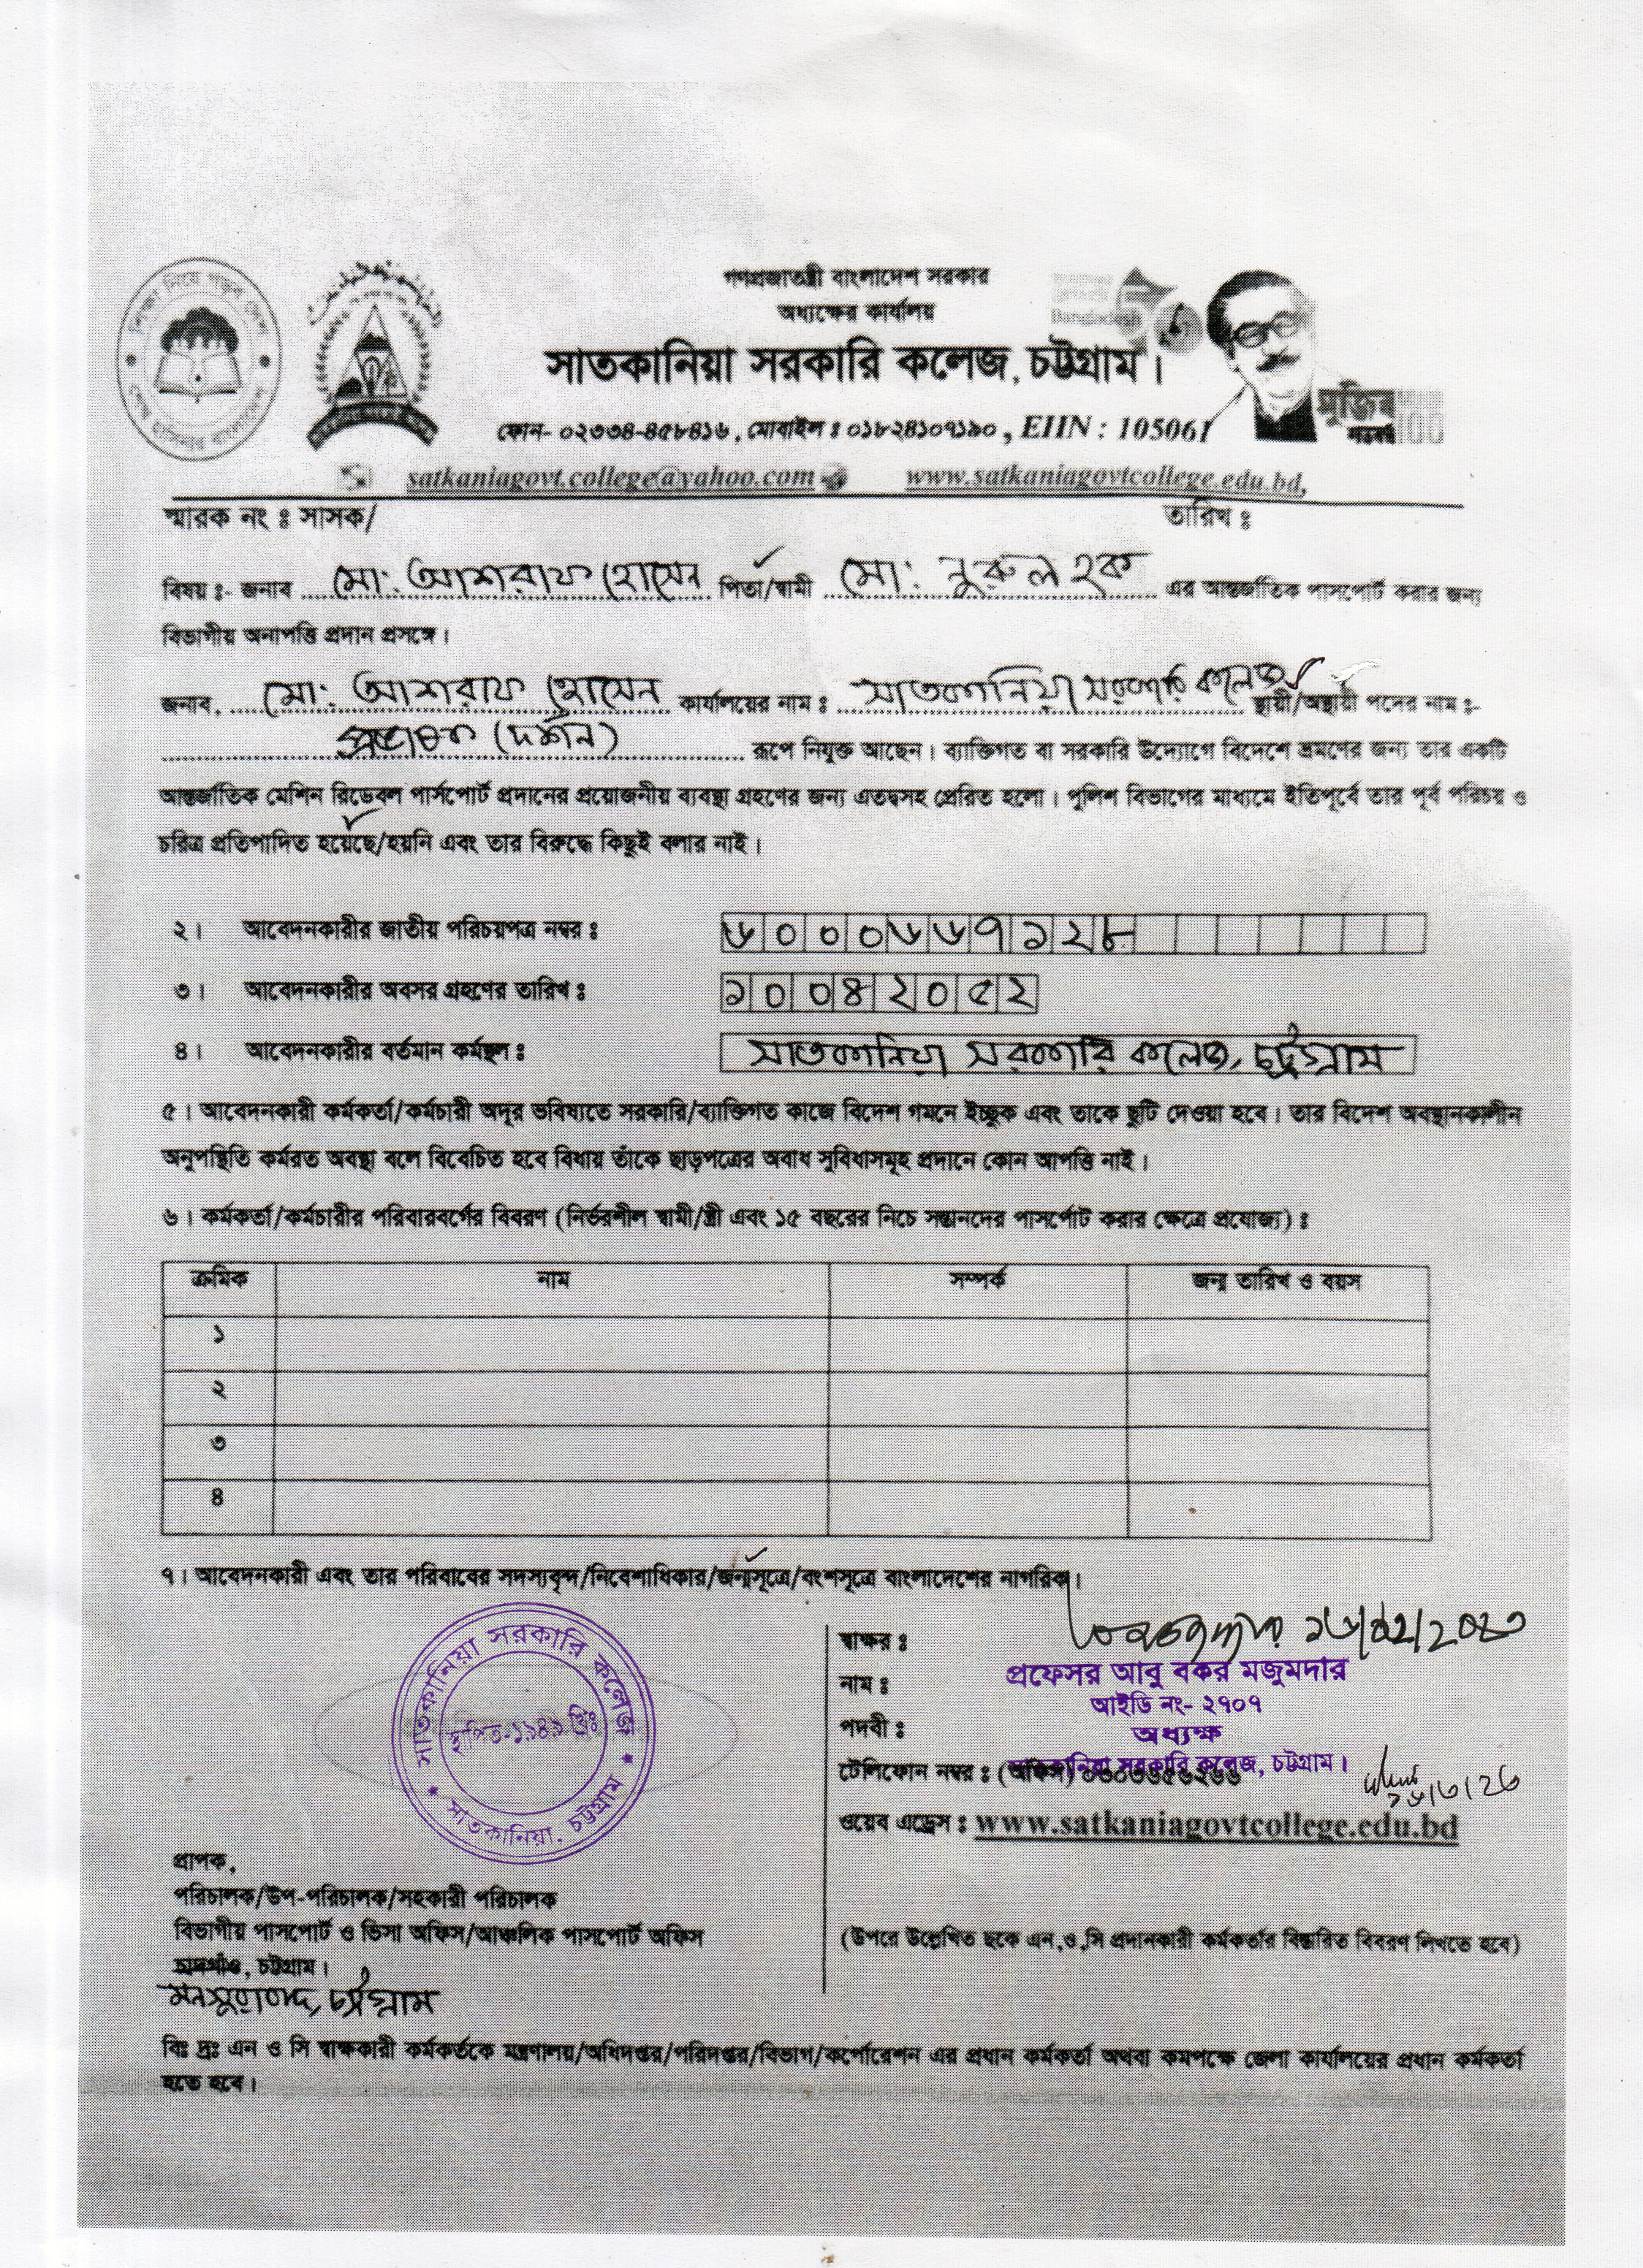 গণপ্রজাতন্ত্রী বাংলাদেশ সরকার
অধ্যক্ষের কার্যালয়
সাতকানিয়া সরকারি কলেজ, চট্টগ্রাম।
ফোন- ০২৩৩৪-৪৫৮৪১৬, মোবাইল ঃ ০১৮২৪১০৭১৯০, EIIN : 105061
satkaniagovt.college@yahoo.com www.satkaniagovtcollege.edu.bd,
শিক্ষা নিয়ে গড়ব দেশ
শেখ হাসিনার বাংলাদেশ
Bangladesh
মুজিব
শতবর্ষ 100
স্মারক নং ঃ সাসক/ তারিখ ঃ
বিষয় ঃ- জনাব মো: আশরাফ হোসেন পিতা/স্বামী মো: নুরুল হক এর আন্তর্জাতিক পাসপোর্ট করার জন্য
বিভাগীয় অনাপত্তি প্রদান প্রসঙ্গে।
জনাব, মো: আশরাফ হোসেন কার্যালয়ের নাম ঃ সাতকানিয়া সরকারি কলেজ স্থায়ী/অস্থায়ী পদের নাম ঃ-
প্রভাষক (দর্শন) রূপে নিযুক্ত আছেন। ব্যাক্তিগত বা সরকারি উদ্যোগে বিদেশে ভ্রমণের জন্য তার একটি
আন্তর্জাতিক মেশিন রিডেবল পার্সপোর্ট প্রদানের প্রয়োজনীয় ব্যবস্থা গ্রহণের জন্য এতদ্বসহ প্রেরিত হলো। পুলিশ বিভাগের মাধ্যমে ইতিপূর্বে তার পূর্ব পরিচয় ও
চরিত্র প্রতিপাদিত হয়েছে/হয়নি এবং তার বিরুদ্ধে কিছুই বলার নাই।
২। আবেদনকারীর জাতীয় পরিচয়পত্র নম্বর ঃ ৬০০০৬৬৭১২৮
৩। আবেদনকারীর অবসর গ্রহণের তারিখ ঃ ১০০৪২০৫২
৪। আবেদনকারীর বর্তমান কর্মস্থল ঃ সাতকানিয়া সরকারি কলেজ, চট্টগ্রাম
৫। আবেদনকারী কর্মকর্তা/কর্মচারী অদূর ভবিষ্যতে সরকারি/ব্যাক্তিগত কাজে বিদেশ গমনে ইচ্ছুক এবং তাকে ছুটি দেওয়া হবে। তার বিদেশ অবস্থানকালীন
অনুপস্থিতি কর্মরত অবস্থা বলে বিবেচিত হবে বিধায় তাঁকে ছাড়পত্রের অবাধ সুবিধাসমূহ প্রদানে কোন আপত্তি নাই।
৬। কর্মকর্তা/কর্মচারীর পরিবারবর্গের বিবরণ (নির্ভরশীল স্বামী/স্ত্রী এবং ১৫ বছরের নিচে সন্তানদের পাসর্পোট করার ক্ষেত্রে প্রযোজ্য) ঃ
ক্রমিক নাম সম্পর্ক জন্ম তারিখ ও বয়স
১
২
৩
৪
৭। আবেদনকারী এবং তার পরিবাবের সদস্যবৃন্দ/নিবেশাধিকার/জন্মসূত্রে/বংশসূত্রে বাংলাদেশের নাগরিক।
সাতকানিয়া সরকারি কলেজ
স্থাপিত-১৯৪৯ খ্রিঃ
সাতকানিয়া, চট্টগ্রাম
স্বাক্ষর ঃ
নাম ঃ প্রফেসর আবু বকর মজুমদার
আইডি নং- ২৭০৭
পদবী ঃ অধ্যক্ষ
সাতকানিয়া সরকারি কলেজ, চট্টগ্রাম।
টেলিফোন নম্বর ঃ (অফিস)
ওয়েব এড্রেস ঃ www.satkaniagovtcollege.edu.bd
প্রাপক,
পরিচালক/উপ-পরিচালক/সহকারী পরিচালক
বিভাগীয় পাসপোর্ট ও ভিসা অফিস/আঞ্চলিক পাসপোর্ট অফিস
চান্দগাঁও, চট্টগ্রাম।
মনসুরাবাদ, চট্টগ্রাম
(উপরে উল্লেখিত ছকে এন,ও,সি প্রদানকারী কর্মকর্তার বিস্তারিত বিবরণ লিখতে হবে)
বিঃ দ্রঃ এন ও সি স্বাক্ষকারী কর্মকর্তকে মন্ত্রণালয়/অধিদপ্তর/পরিদপ্তর/বিভাগ/কর্পোরেশন এর প্রধান কর্মকর্তা অথবা কমপক্ষে জেলা কার্যালয়ের প্রধান কর্মকর্তা
হতে হবে।